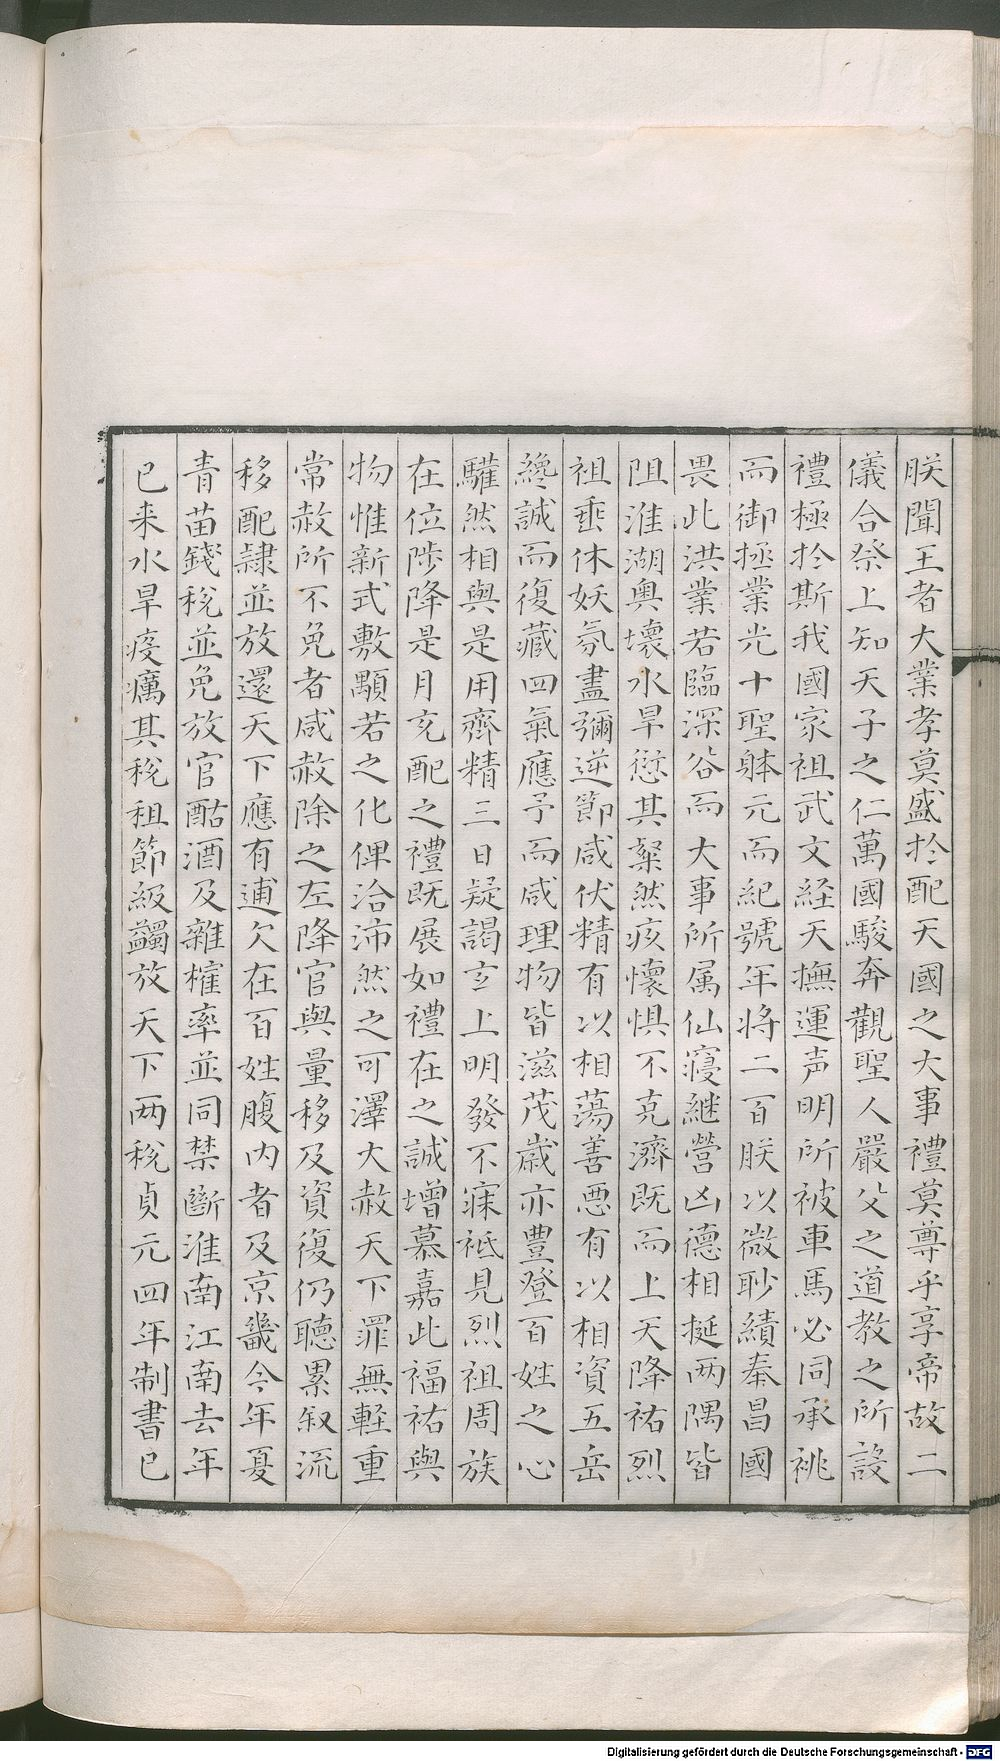 朕聞王者大業孝莫盛扵配天國之大事禮莫尊乎享帝故二
儀合祭上知天子之仁萬國駿奔觀聖人嚴父之道教之所設
禮極扵斯我國家祖武文経天撫運声明所被車馬必同承祧
而御拯業光十聖躰元而紀號年将二百朕以微眇績奉昌國
畏此洪業若臨深谷而大事所属仙寢継營凶德相挻两隅皆
阻淮湖奥壤水旱愆其粲然疚懷惧不克濟既而上天降祐烈
祖垂休妖氛盡彌逆節咸伏精有以相蕩善悪有以相資五岳
纔誠而復藏四氣應予而咸理物皆滋茂嵗亦豐登百姓之心
驩然相與是用齊精三日疑謁玄上明發不寐祗見烈祖周族
在位陟降是月玄配之禮既展如禮在之誠增慕嘉此福祐與
物惟新式敷顒若之化俾洽沛然之可澤大赦天下罪無軽重
常赦所不免者咸赦除之左降官與量移及資復仍聽累叙流
移配隷並放還天下應有逋欠在百姓腹内者及京畿今年夏
青苗錢稅並免放官酤酒及雜榷率並同禁斷淮南江南去年
已来水旱疫癘其稅租節級蠲放天下两稅貞元四年制書已
Digitalisierung gefördert durch die Deutsche Forschungsgemeinschaft - DFG